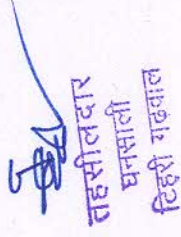 तहसीलदार
घनसाली
टिहरी गढ़वाल